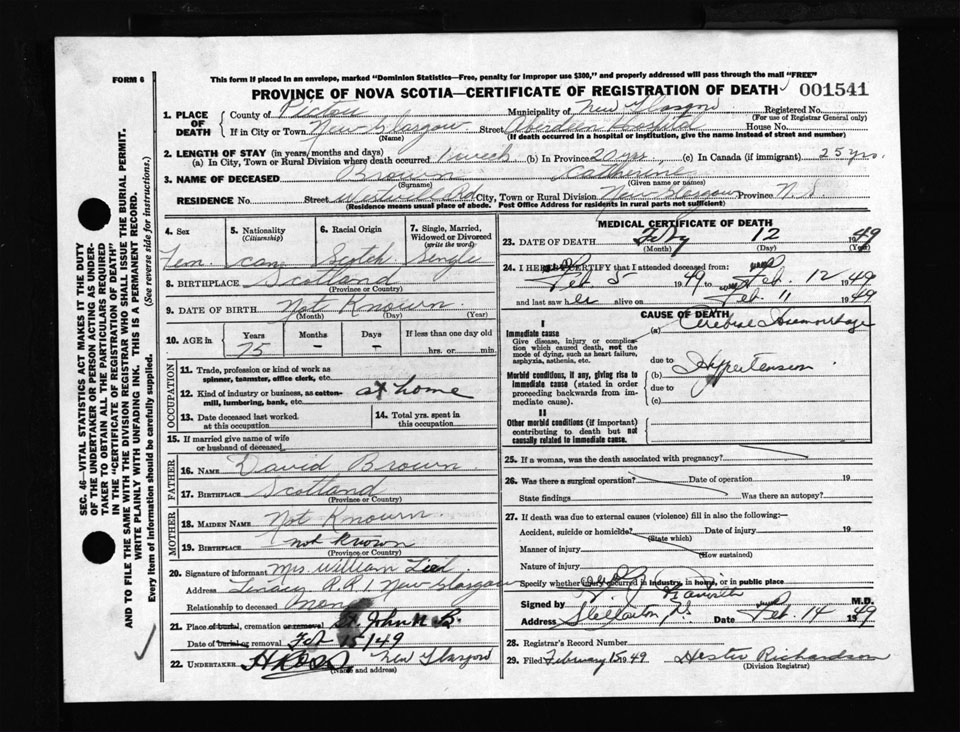 FORM 6
This form if placed in an envelope, marked "Dominion Statistics—Free, penalty for improper use $300," and properly addressed will pass through the mail "FREE"
PROVINCE OF NOVA SCOTIA—CERTIFICATE OF REGISTRATION OF DEATH 001541
1. PLACE OF DEATH
County of Pictou Municipality of New Glasgow Registered No.
(For use of Registrar General only)
If in City or Town New Glasgow Street Aberdeen Hospital House No.
(Name) (If death occurred in a hospital or institution, give the name instead of street and number)
2. LENGTH OF STAY (in years, months and days)
(a) In City, Town or Rural Division where death occurred 1 week (b) In Province 20 yrs (c) In Canada (if immigrant) 25 yrs.
3. NAME OF DECEASED Brown Catherine
(Surname) (Given name or names)
RESIDENCE No. Street Rd City, Town or Rural Division New Glasgow Province N.S
(Residence means usual place of abode. Post Office Address for residents in rural parts not sufficient)
4. Sex 5. Nationality (Citizenship) 6. Racial Origin 7. Single, Married, Widowed or Divorced (write the word)
Fem. Can Scotch Single
8. BIRTHPLACE Scotland
(Province or Country)
9. DATE OF BIRTH Not Known
(Month) (Day) (Year)
10. AGE in Years Months Days If less than one day old
75 – – hrs. or min.
OCCUPATION
11. Trade, profession or kind of work as spinner, teamster, office clerk, etc.
12. Kind of industry or business, as cotton-mill, lumbering, bank, etc. at home
13. Date deceased last worked at this occupation
14. Total yrs. spent in this occupation
15. If married give name of wife or husband of deceased
FATHER
16. NAME David Brown
17. BIRTHPLACE Scotland
(Province or Country)
MOTHER
18. MAIDEN NAME Not Known
19. BIRTHPLACE not known
(Province or Country)
20. Signature of informant Mrs. William
Address R.R.1 New Glasgow
Relationship to deceased None
21. Place of burial, cremation or removal St. John N.B.
Date of burial or removal Feb 15/49
22. UNDERTAKER H Ross New Glasgow
(Name and address)
MEDICAL CERTIFICATE OF DEATH
23. DATE OF DEATH Feby 12 1949
(Month) (Day) (Year)
24. I HEREBY CERTIFY that I attended deceased from:
Feb. 5 1949 to Feb. 12 1949
and last saw her alive on Feb. 11 1949
CAUSE OF DEATH
I
Immediate cause
Give disease, injury or complication which caused death, not the mode of dying, such as heart failure, asphyxia, asthenia, etc.
(a) Cerebral Haemorrhage
due to
Morbid conditions, if any, giving rise to immediate cause (stated in order proceeding backwards from immediate cause).
(b) Hypertension
due to
(c)
II
Other morbid conditions (if important) contributing to death but not causally related to immediate cause.
25. If a woman, was the death associated with pregnancy?
26. Was there a surgical operation? Date of operation 19
State findings Was there an autopsy?
27. If death was due to external causes (violence) fill in also the following:—
Accident, suicide or homicide? Date of injury 19
(State which)
Manner of injury
(How sustained)
Nature of injury
Specify whether injury occurred in industry, in home, or in public place
Signed by M.D.
Address Stellarton N.S. Date Feb. 14 1949
28. Registrar's Record Number
29. Filed February 15 1949 Hester Richardson
(Division Registrar)
SEC. 46—VITAL STATISTICS ACT MAKES IT THE DUTY
OF THE UNDERTAKER OR PERSON ACTING AS UNDER-
TAKER TO OBTAIN ALL THE PARTICULARS REQUIRED
IN THE "CERTIFICATE OF REGISTRATION OF DEATH"
AND TO FILE THE SAME WITH THE DIVISION REGISTRAR WHO SHALL ISSUE THE BURIAL PERMIT.
WRITE PLAINLY WITH UNFADING INK. THIS IS A PERMANENT RECORD.
Every item of information should be carefully supplied. (See reverse side for instructions.)